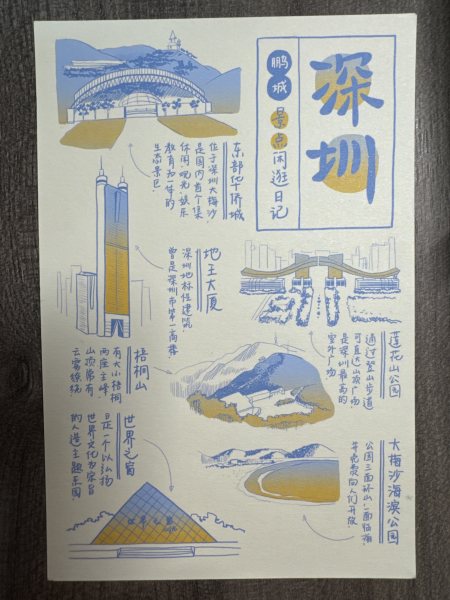 深圳
鹏城
景点闲逛日记
东部华侨城
位于深圳大梅沙
是国内首个集
休闲、观光、娱乐
教育为一体的
生态景区。
地王大厦
深圳地标性建筑
曾是深圳市第一高楼
莲花山公园
通过登山步道
可直达山顶广场
是深圳最高的
室外广场
梧桐山
有大小梧桐
两座主峰
山顶常有
云雾缭绕
世界之窗
是一个以弘扬
世界文化为宗旨
的人造主题乐园。
世界之窗
大梅沙海滨公园
公园三面环山,一面临海,
并免费向人们开放